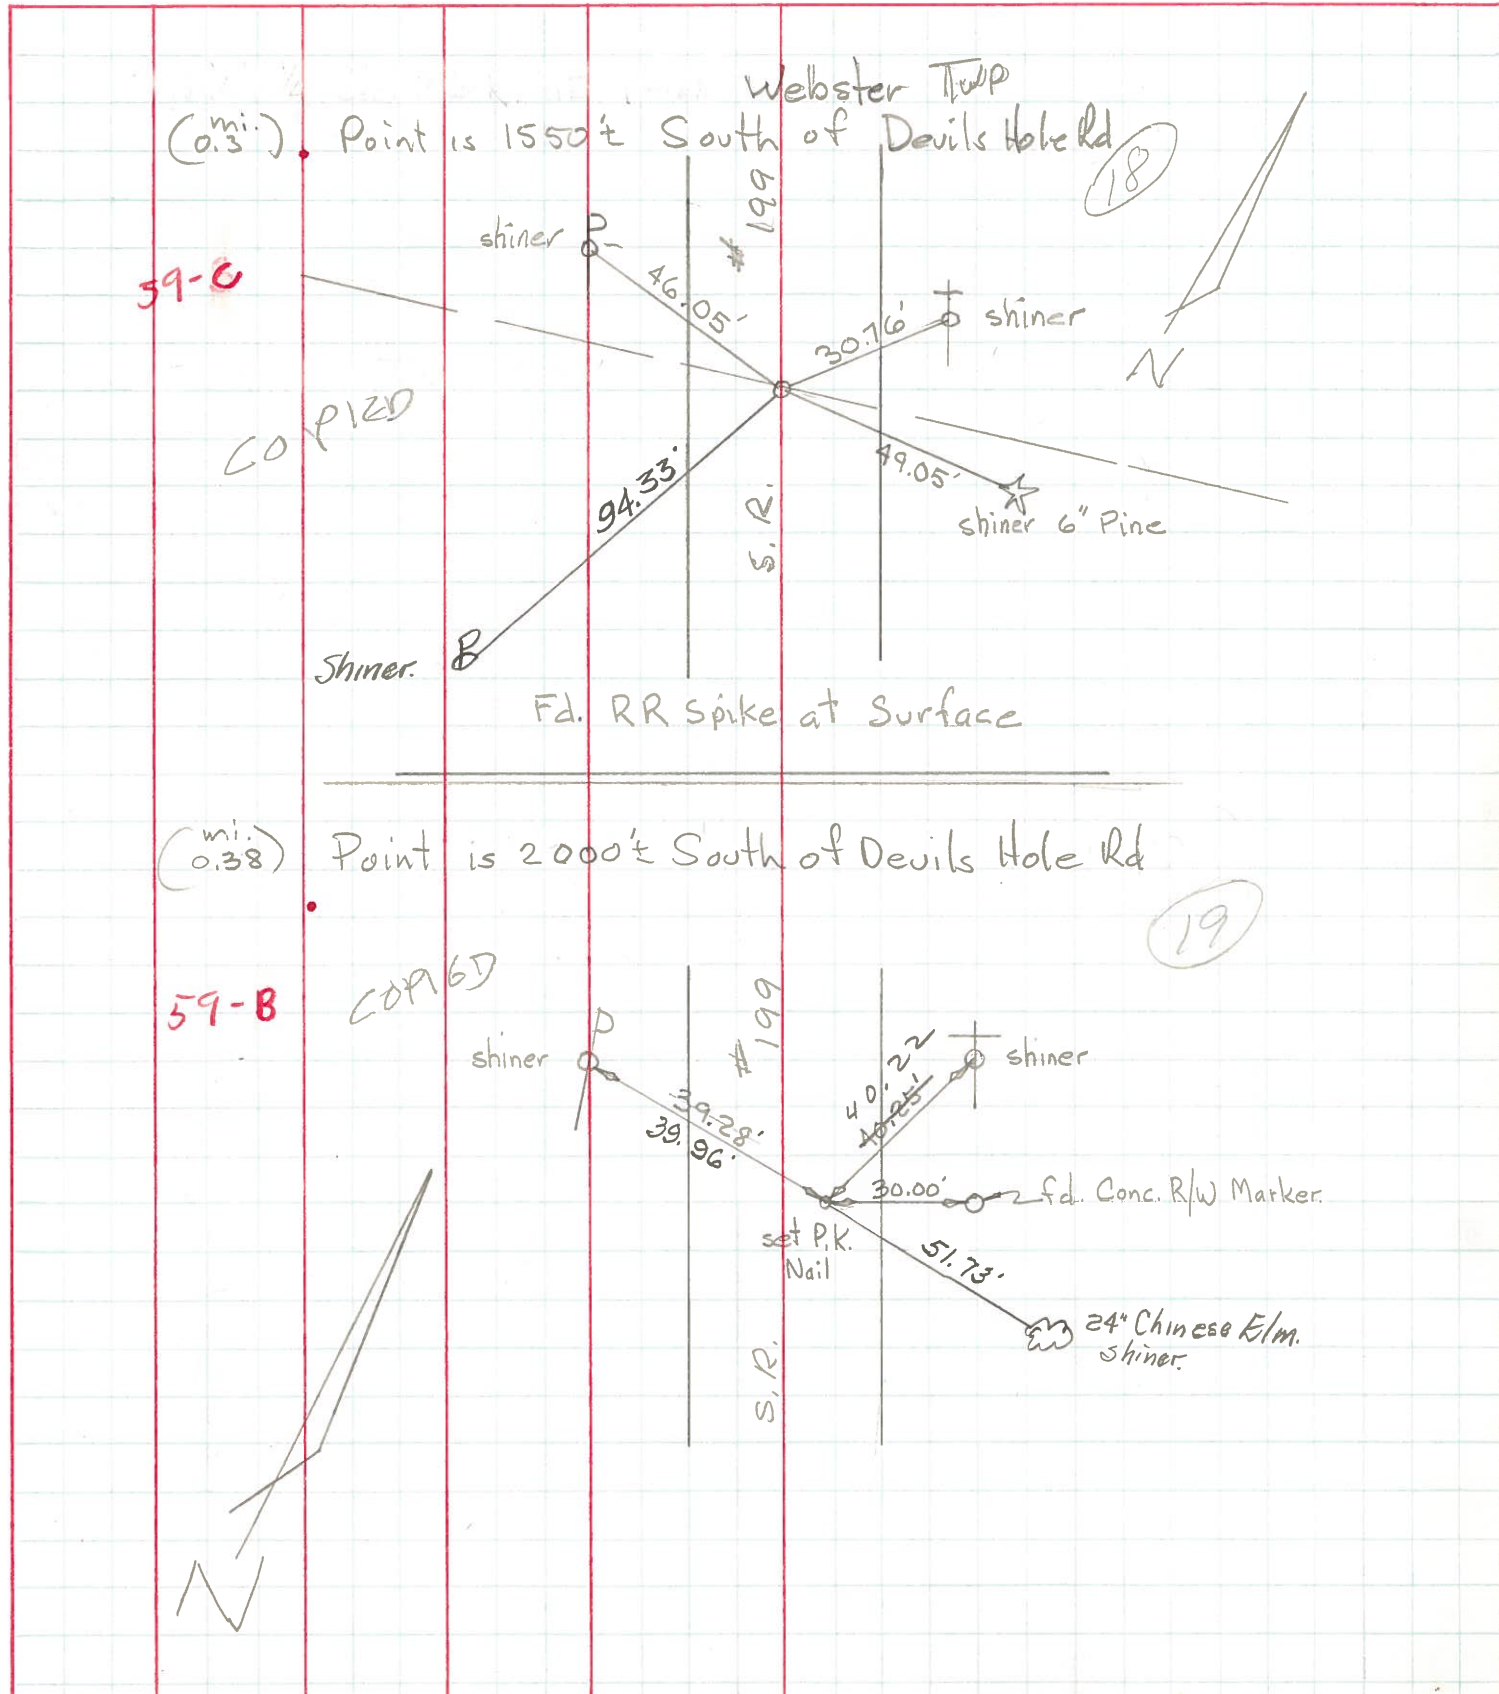 Webster Twp
(0.3 mi.) Point is 1550'± South of Devils Hole Rd
18
shiner P
# 199
59-C
46.05'
30.76'
shiner
N
COPIED
49.05'
94.33'
S. R.
shiner 6" Pine
Shiner. P
Fd. RR Spike at Surface
(0.38 mi.) Point is 2000'± South of Devils Hole Rd
19
59-B
COPIED
# 199
P
shiner
shiner
40.22
40.25'
39.28'
39.96'
30.00'
fd. Conc. R/W Marker.
set P.K.
Nail
51.73'
24" Chinese Elm.
shiner.
S. R.
N